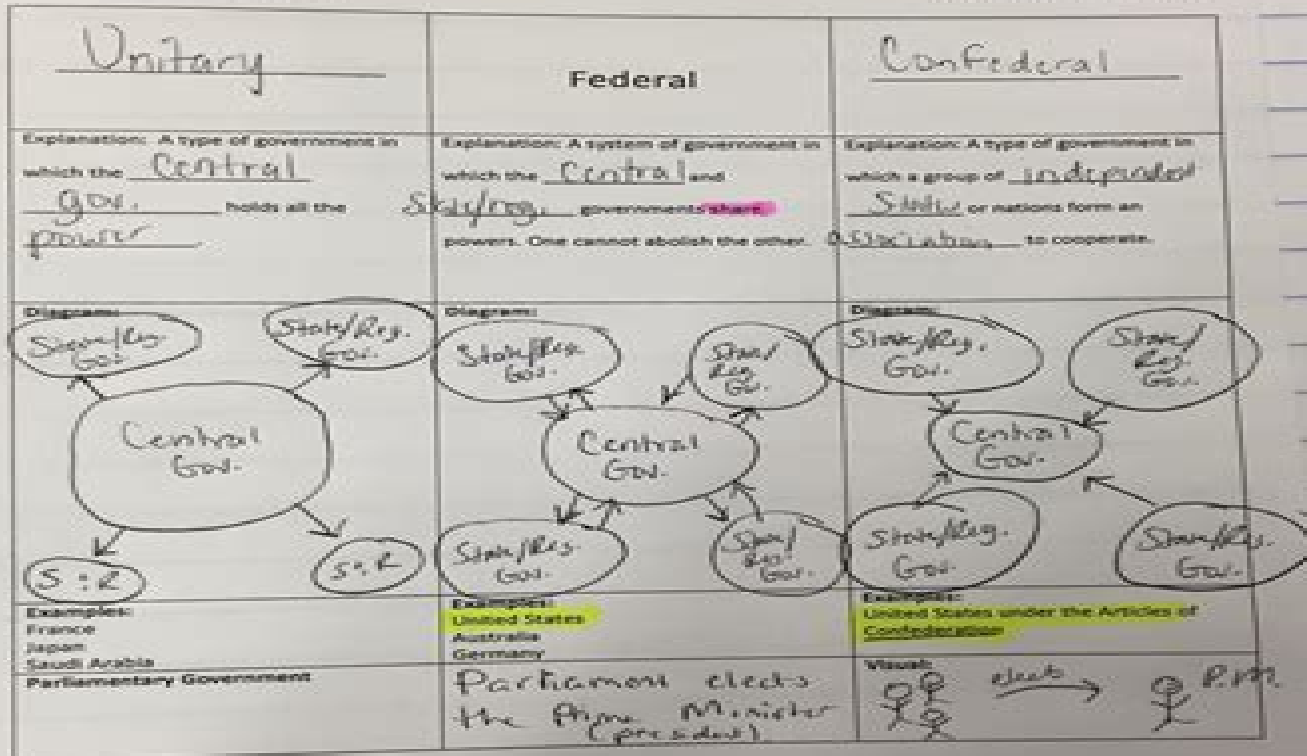 Unitary
Federal
Confederal
Explanation: A type of government in
which the Central
gov. holds all the
power
Explanation: A system of government in
which the Central and
State/reg. governments share
powers. One cannot abolish the other.
Explanation: A type of government in
which a group of independent
States or nations form an
association to cooperate.
Diagram:
State/Reg.
Gov.
State/Reg.
Gov.
Central
Gov.
S : R
S : R
Diagram:
State/Reg.
Gov.
State/
Reg.
Gov.
Central
Gov.
State/Reg.
Gov.
State/
Reg.
Gov.
Diagram:
State/Reg.
Gov.
State/
Reg.
Gov.
Central
Gov.
State/Reg.
Gov.
State/Reg.
Gov.
Examples:
France
Japan
Saudi Arabia
Examples:
United States
Australia
Germany
Examples:
United States under the Articles of
Confederation
Parliamentary Government
Parliament elects
the Prime Minister
(president)
Visual:
elects
P.M.